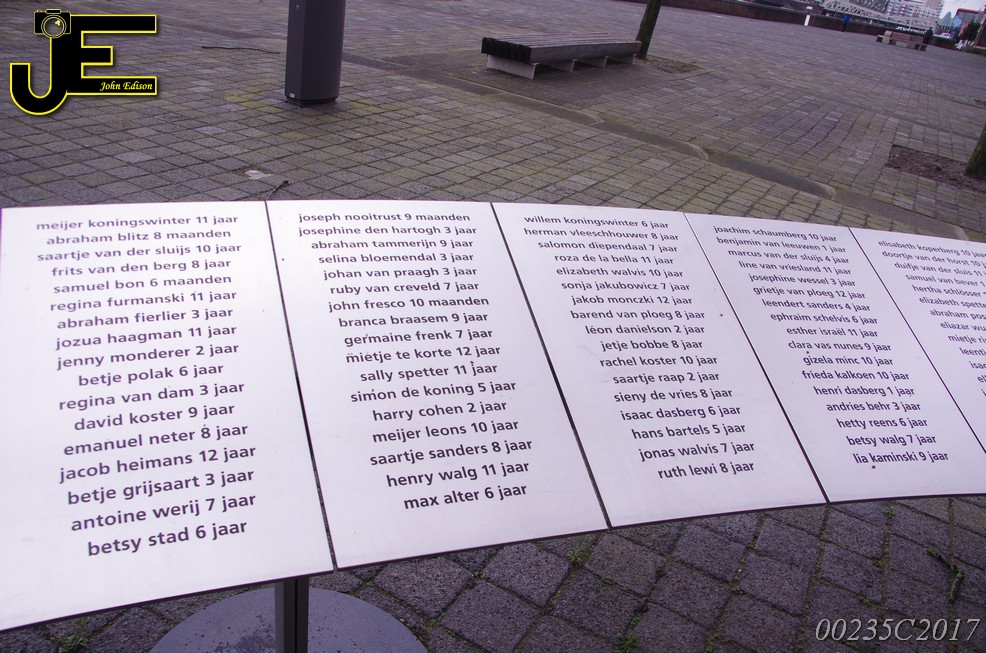 JE
John Edison
meijer koningswinter 11 jaar
abraham blitz 8 maanden
saartje van der sluijs 10 jaar
frits van den berg 8 jaar
samuel bon 6 maanden
regina furmanski 11 jaar
abraham fierlier 3 jaar
jozua haagman 11 jaar
jenny monderer 2 jaar
betje polak 6 jaar
regina van dam 3 jaar
david koster 9 jaar
emanuel neter 8 jaar
jacob heimans 12 jaar
betje grijsaart 3 jaar
antoine werij 7 jaar
betsy stad 6 jaar
joseph nooitrust 9 maanden
josephine den hartogh 3 jaar
abraham tammerijn 9 jaar
selina bloemendal 3 jaar
johan van praagh 3 jaar
ruby van creveld 7 jaar
john fresco 10 maanden
branca braasem 9 jaar
germaine frenk 7 jaar
mietje te korte 12 jaar
sally spetter 11 jaar
simon de koning 5 jaar
harry cohen 2 jaar
meijer leons 10 jaar
saartje sanders 8 jaar
henry walg 11 jaar
max alter 6 jaar
willem koningswinter 6 jaar
herman vleeschhouwer 8 jaar
salomon diependaal 7 jaar
roza de la bella 11 jaar
elizabeth walvis 10 jaar
sonja jakubowicz 7 jaar
jakob monczki 12 jaar
barend van ploeg 8 jaar
léon danielson 2 jaar
jetje bobbe 8 jaar
rachel koster 10 jaar
saartje raap 2 jaar
sieny de vries 8 jaar
isaac dasberg 6 jaar
hans bartels 5 jaar
jonas walvis 7 jaar
ruth lewi 8 jaar
joachim schaumberg 10 jaar
benjamin van leeuwen 1 jaar
marcus van der sluijs 4 jaar
line van vriesland 11 jaar
josephine wessel 3 jaar
grietje van ploeg 12 jaar
leendert sanders 4 jaar
ephraim schelvis 6 jaar
esther israël 11 jaar
clara vas nunes 9 jaar
gizela minc 10 jaar
frieda kalkoen 10 jaar
henri dasberg 1 jaar
andries behr 3 jaar
hetty reens 6 jaar
betsy walg 7 jaar
lia kaminski 9 jaar
elisabeth koperberg 10
doortje van der horst
duifje van der sluis
samuel van bever
hertha schlösser
elizabeth
abraham
eliazar
mietje
00235C2017